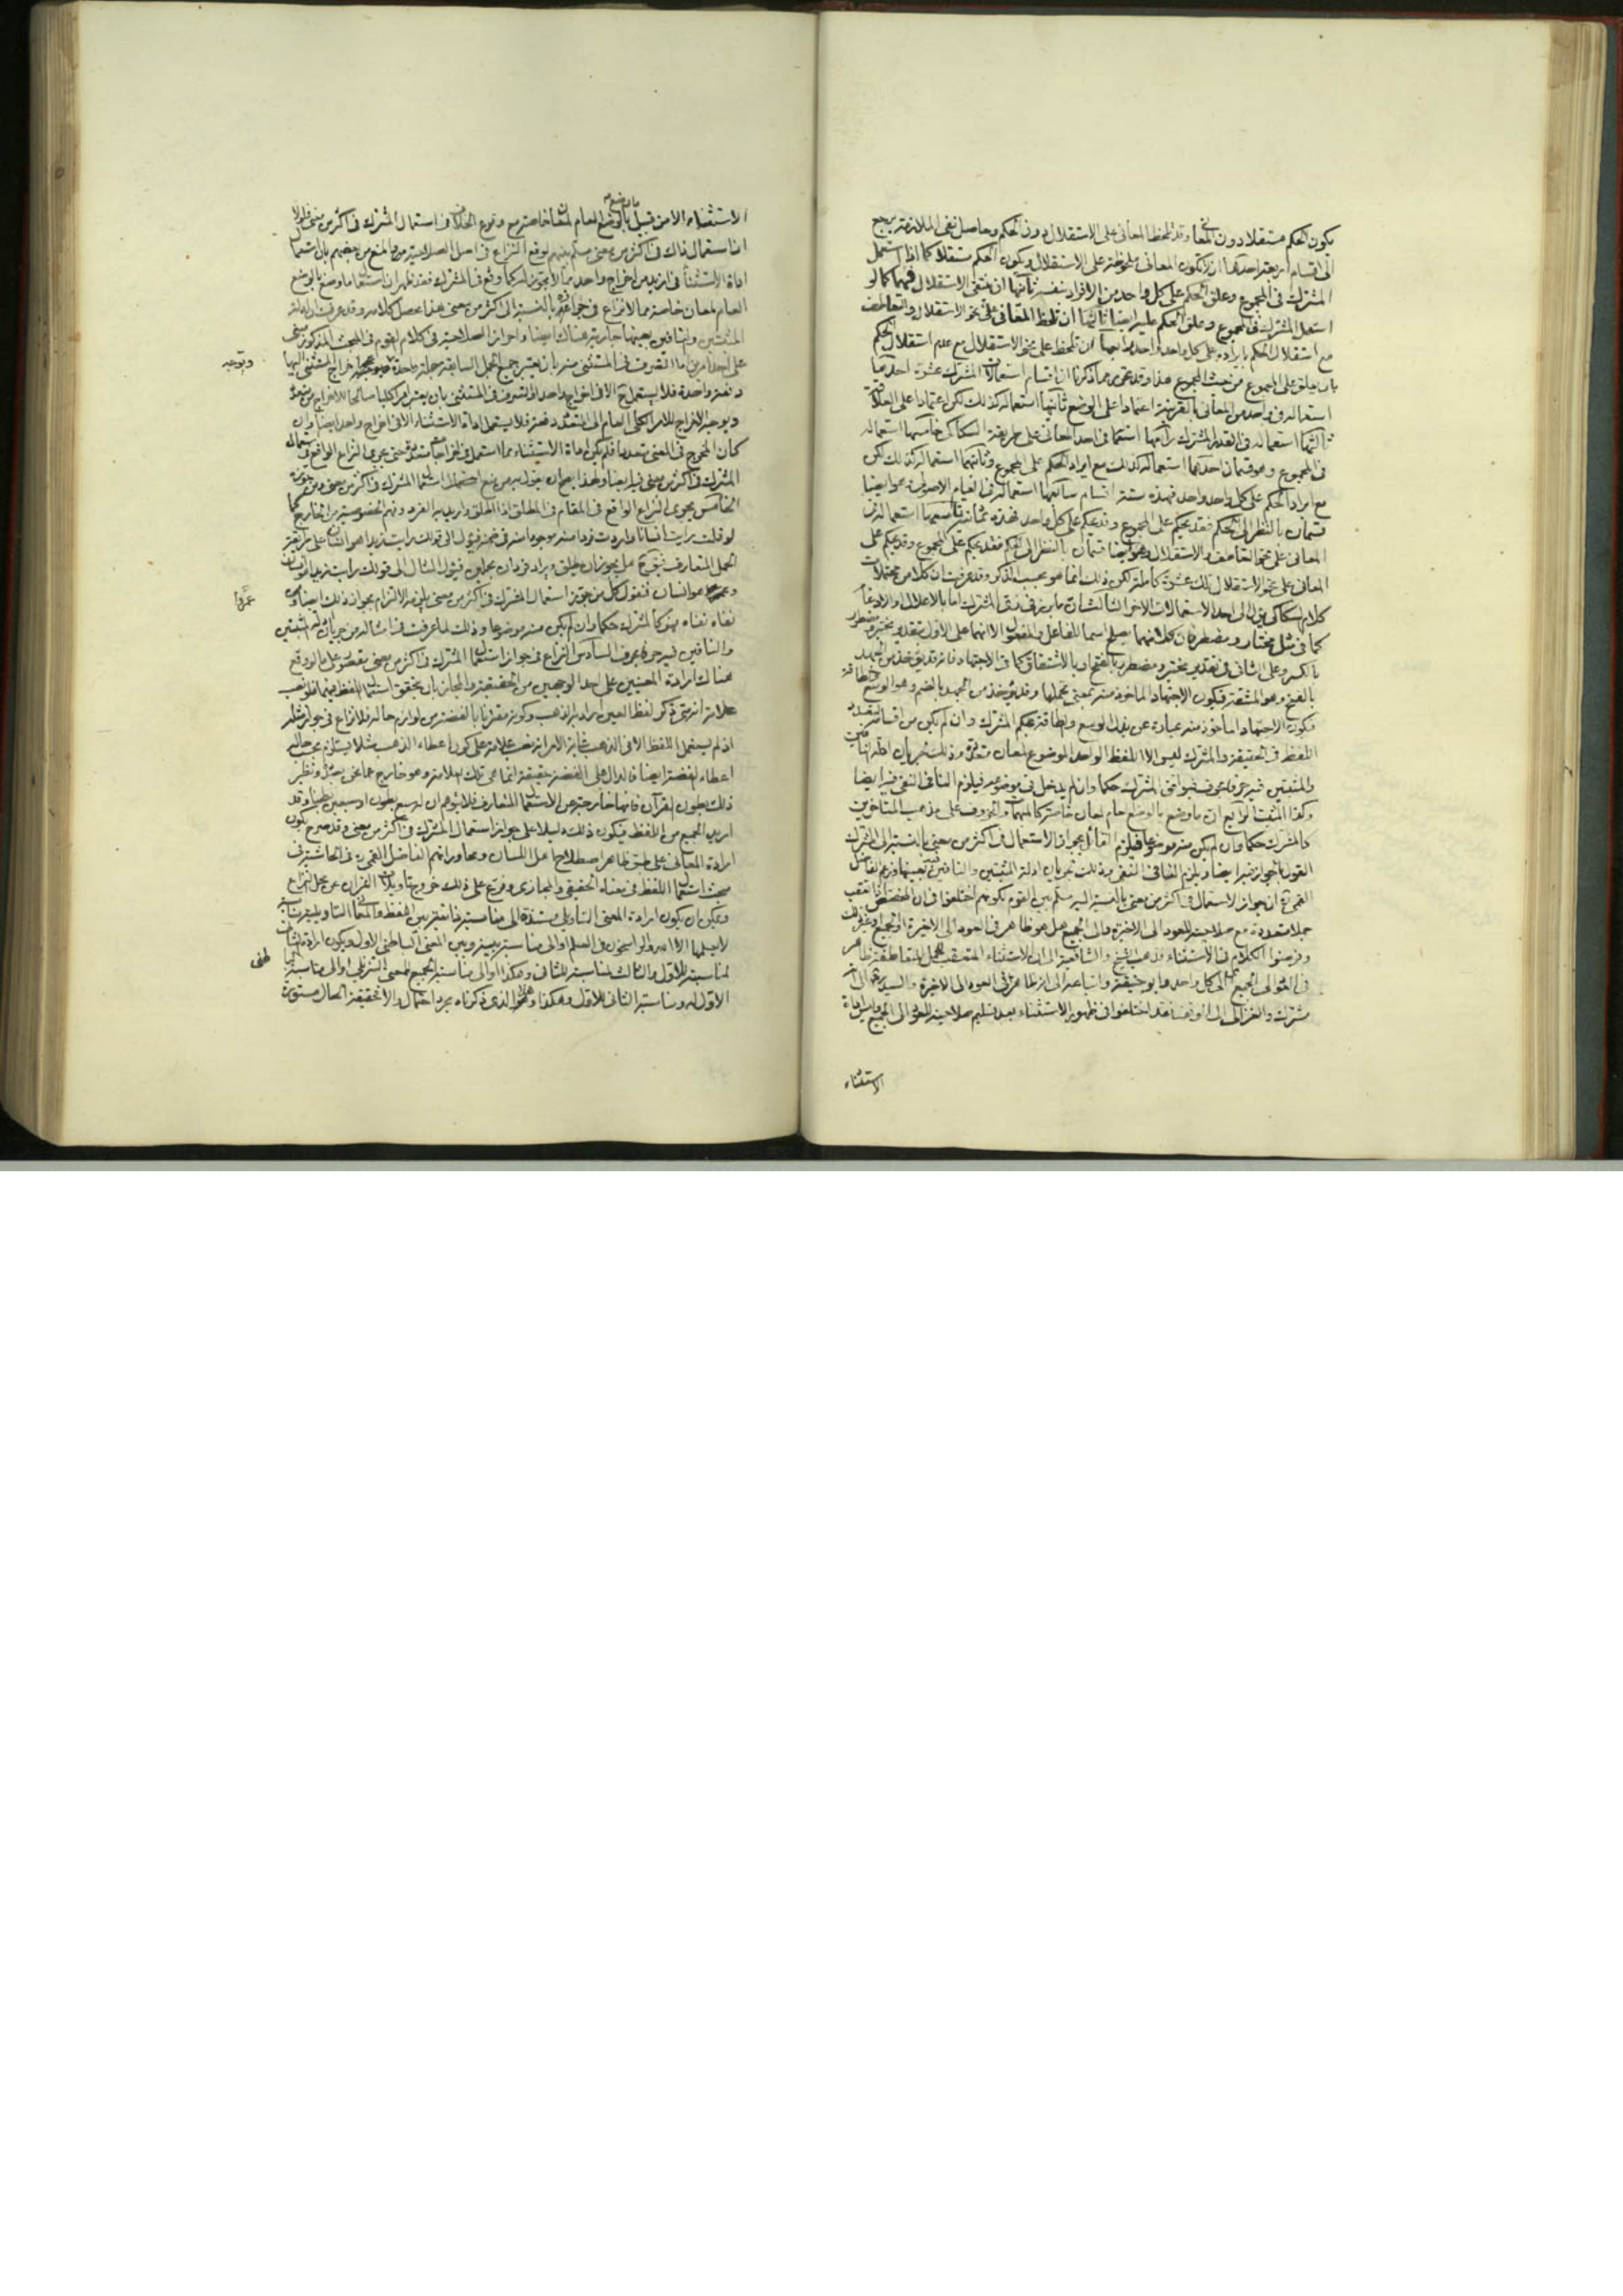 يكون الحكم مستقلا دون المعانى وقد تلحظ المعانى على الاستقلال دون الحكم وحاصل نفى الملازمة يرجع
الى اقسام اربعة احدها ان تكون المعانى ملحوظة على الاستقلال ويكون الحكم مستقلا كما اذا استعمل
المشترك فى المجموع وعلق الحكم على كل واحد من الافراد بنفسه ثانيها ان ينتفى الاستقلال فيهما كما لو
استعمل المشترك فى المجموع وعلق الحكم عليه ايضا ثالثها ان تلحظ المعانى على نحو الاستقلال والتعاطف
مع استقلال الحكم بايراده على كل واحد واحد رابعها ان تلحظ على نحو الاستقلال مع عدم استقلال الحكم
بان يعلق على المجموع من حيث المجموع هذا وقد تحرى مما ذكرنا ان اقسام استعمالات المشترك عشرة احدها
استعماله فى واحد من المعانى بالقرينة اعتمادا على الوضع ثانيها استعماله كذلك لكن اعتمادا على العلاقة
ثالثها استعماله فى القدر المشترك رابعها استعماله فى احد المعانى على طريقة السكاكى خامسها استعماله
فى المجموع وهو قسمان احدهما استعماله كذلك مع ايراد الحكم على المجموع وثانيهما استعماله كذلك لكن
مع ايراد الحكم على كل واحد واحد فهذه ستة اقسام سابعها استعماله فى العام الاصولى وهو ايضا
قسمان بالنظر الى الحكم فقد يحكم على المجموع وقد يحكم على كل واحد فهذه ثمانية تاسعها استعماله فى
المعانى على نحو التعاطف والاستقلال وهو ايضا قسمان بالنظر الى الحكم فقد يحكم على المجموع وقد يحكم على
المعانى على نحو الاستقلال تلك عشرة كاملة لكن ذلك انما هو بحسب الذكر وقد عرفت ان كلا من محتملات
كلام السكاكى يؤل الى احد الاستعمالات الاخر الثالث ان ما برز فى زى المشترك اما بالاعلال او الادغام
كما فى مثل مختار ومضطر فان كلا منهما يصلح اسما للفاعل والمفعول الا انهما على الاول بتقدير مختير ومضطرر
بالكسر وعلى الثانى فى تقدير مختير ومضطرر بالفتح او بالاشتقاق كما فى الاجتهاد فانه قد يؤخذ من الجهد
بالفتح وهو المشقة فيكون الاجتهاد الماخوذ منه بمعنى تحملها وقد يؤخذ من الجهد بالضم وهو الوسع والطاقة
فيكون الاجتهاد الماخوذ منه عبارة عن بذل الوسع والطاقة بحكم المشترك وان لم يكن من اقسامه لتعدد
اللفظ فى الحقيقة والمشترك ليس الا اللفظ الواحد الموضوع لمعان متعددة وذلك لجريان ادلة النافين
والمثبتين فيه حرفا بحرف فهو افخى المشترك حكما وان لم يدخل فى موضوعه فيلزم النافى النفى فيه ايضا
وكذا المثبت الرابع ان ما وضع بالوضع العام لمعان خاصة كالمبهمات والحروف على مذهب المتاخرين
كالمشترك حكما وان لم يكن منه موضوعا فيلزم القائل بجواز الاستعمال فى اكثر من معنى بالنسبة الى المشترك
القول بالجواز فيه ايضا ويلزم النافى النفى وذلك لجريان ادلة المثبتين والنافين فيه بعينها وزعم الفاضل
القمى ره ان جواز الاستعمال فى اكثر من معنى بالنسبة اليه مسلم بين القوم لكونهم اختلفوا فى ان المخصص اذا تعقب
جملا متعددة مع صلاحيته للعود الى الاخيرة والى الجميع هل هو ظاهر فى العود الى الاخيرة او الجميع او غير ذلك
وفرضوا الكلام فى الاستثناء وذهب الشيخ والشافعية الى ان الاستثناء المتعقب للجمل المتعاطفة ظاهر
فى العود الى الجميع اى كل واحد وابو حنيفة واتباعه الى انه ظاهر فى العود الى الاخيرة والسيد ره الى انه
مشترك والغزالى الى الوقف فقد اختلفوا فى ظهور الاستثناء بعد تسليم صلاحيته للعود الى الجميع وليس اداة
الاستثناء
الاستثناء الا من قبيل ما وضع بالوضع العام لمعان خاصة مع وقوع الخلاف فى استعمال المشترك فى اكثر من معنى فلولا
ان استعمال ذاك فى اكثر من معنى مسلم بينهم لوقع النزاع فى اصل الصلاحية
العام لمعان خاصة مما لا نزاع فى جوازه بالنسبة الى اكثر من معنى هذا محصل كلامه وقد عرفت ان ادلة
المثبتين والنافين بعينها جارية هناك ايضا واما جواز الصلاحية فى كلام القوم فى المبحث المذكور مبنى
على احد امرين اما التصرف فى المستثنى منه بان يعتبر جميع الجمل السابقة جملة واحدة
ويوجه
دفعة واحدة فلا يستعمل ح الا فى اخراج واحد او التصرف فى المستثنى بان يعتبر امرا كليا صالحا للاخراج من متعدد
ويوجه الاخراج للامر الكلى العام الى المتعدد دفعة فلا يستعمل اداة الاستثناء الا فى اخراج واحد ايضا وان
كان المخرج فى المعنى متعددا فلم يكن اداة الاستثناء مما استعمل فى اخراجات متعددة حتى يجرى النزاع الواقع فى استعمال
المشترك فى اكثر من معنى فيه ايضا
الخامس يجرى النزاع الواقع فى المقام فى المطلق اذا اطلق واريد به الفرد وفهم الخصوصية من الخارج كما
لو قلت رايت انسانا واردت فردا منه موجودا منه فى ضمنه فيؤل الى قولك رايت زيدا هو انسان على طريقة
الحمل المتعارف فهل يجوز ان يطلق ويراد فردان بحيالين فيؤل المثال الى قولك رايت زيدا هو انسان
وعمروا هو انسان فنقول كل من جوز استعمال المشترك فى اكثر من معنى يلزمه الالتزام بجواز ذلك ايضا ومن
عمروا
نفاه نفاه فهو كالمشترك حكما وان لم يكن منه موضوعا وذلك لما عرفت فى امثاله من جريان ادلة المثبتين
والنافين فيه حرفا بحرف السادس النزاع فى جواز استعمال المشترك فى اكثر من معنى مقصور على ما لو وقع
هناك ارادة المعنيين على احد الوجهين من الحقيقة والمجاز بان يتحقق استعمال اللفظ فيهما فلو نصب
علامة انه متى ذكر لفظ العين اراد به الذهب وكونه مقرونا بالفضة من لوازم حاله فلا نزاع فى جواز مثله
اذ لم يستعمل اللفظ الا فى الذهب غاية الامر انه نصب علامة على كون اعطاء الذهب مثلا يستلزم بحسب حاله
اعطاء الفضة ايضا فالدال على الفضة حقيقة انما هى تلك العلامة وهو خارج عما نحن بصدده ونظير
ذلك بطون القرآن فانها خارجة عن الاستعمال المتعارف فلا يتوهم ان له سبع بطون او سبعين بطنا وقد
اريد الجميع من اللفظ فيكون ذلك دليلا على جواز استعمال المشترك فى اكثر من معنى وقد صرح بكون
ارادة المعانى على طبق ظاهر اصطلاح اهل اللسان ومحاوراتهم الفاضل القمى ره فى الحاشية فى
مبحث استعمال اللفظ فى معناه الحقيقى والمجازى وفرع على ذلك خروج تاويلات القرآن عن محل النزاع
ويمكن ان يكون ارادة المعنى التاويلى مستندة الى مناسبة ذاتية بين اللفظ والمعانى التاويلية
لا يعلمها الا الله والراسخون فى العلم او الى مناسبة بينه وبين المعنى الباطنى الاول ويكون ارادة الثانى
لمناسبته للاول والثالث لمناسبته للثانى وهكذا او الى مناسبة الجميع للمعنى التنزيلى او الى مناسبة
الاول له ومناسبة الثانى للاول وهكذا وهذا الذى ذكرناه مجرد احتمال والا فحقيقة الحال مستورة